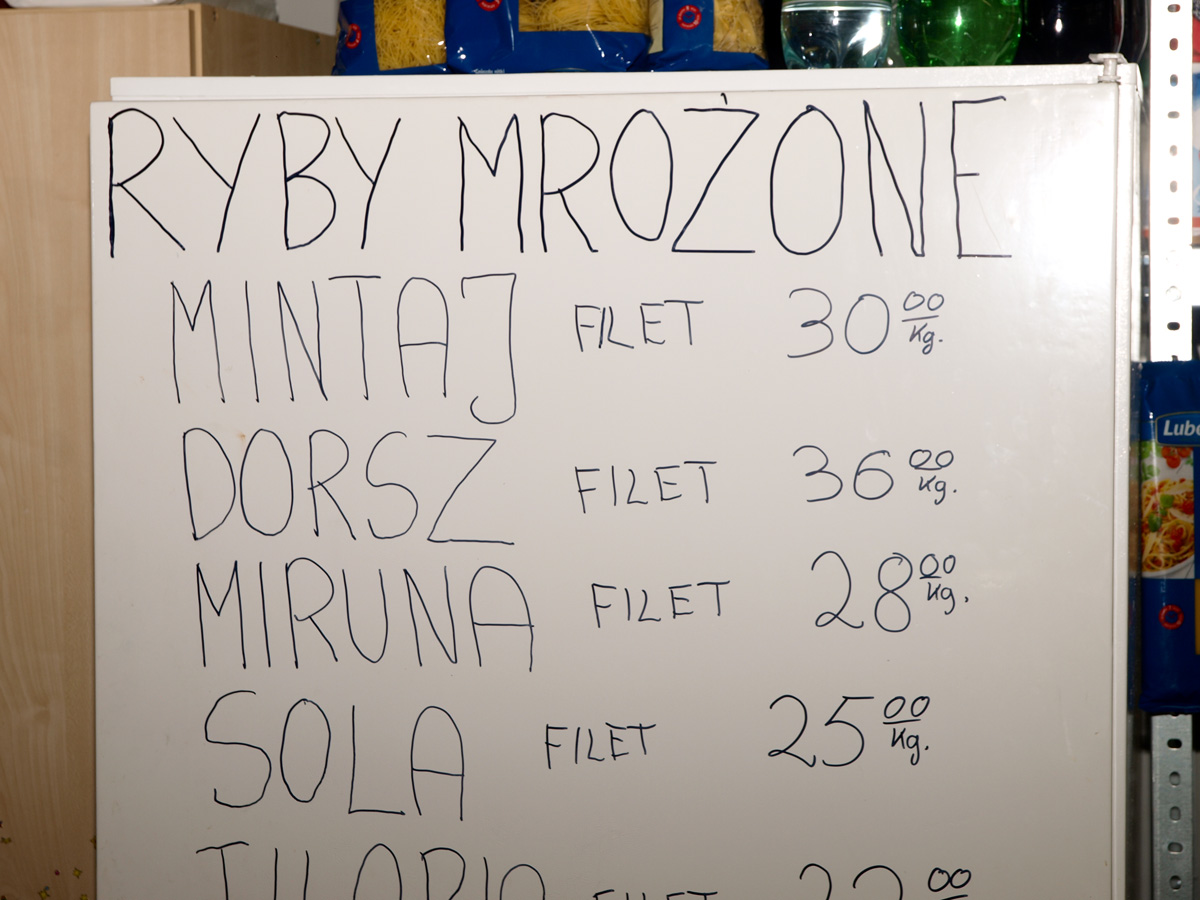 RYBY MROŻONE
MINTAJ FILET 30 00/Kg.
DORSZ FILET 36 00/Kg.
MIRUNA FILET 28 00/Kg.
SOLA FILET 25 00/Kg.
TILAPIA FILET 00
Lube